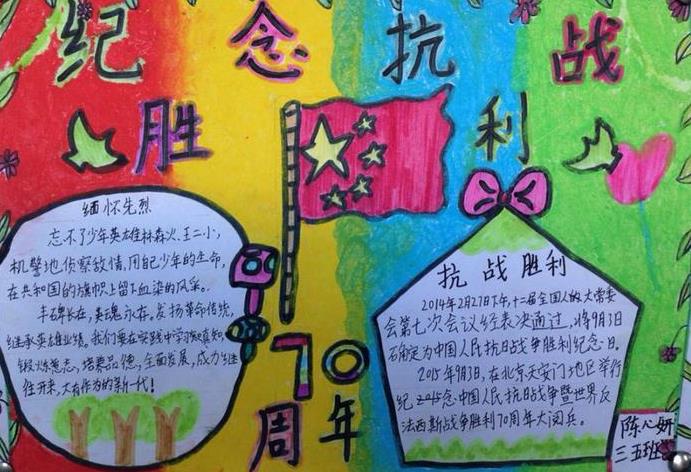 纪念抗战
胜利
缅怀先烈
忘不了少年英雄林森火、王二小,
机警地侦察敌情,用自己少年的生命,
在共和国的旗帜上留下血染的风采。
丰碑长在,英魂永存。发扬革命传统,
继承英雄业绩,我们要在实践中学习真知,
锻炼意志,培养品德,全面发展,成为继
往开来,大有作为的新一代!
抗战胜利
2014年2月27日下午,十二届全国人大常委
会第七次会议经表决通过,将9月3
日确定为中国人民抗日战争胜利纪念日。
2015年9月3日,在北京天安门地区举行
纪念中国人民抗日战争暨世界反
法西斯战争胜利70周年大阅兵。
70
周年
陈心妍
三五班